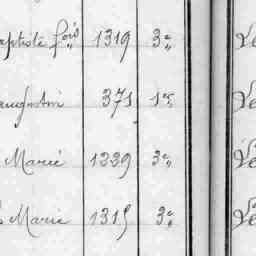 aptiste fois 1319 3e Ve
augustin 371 1e Ve
Marie 1239 3e Ve
Marie 1315 3e Ve